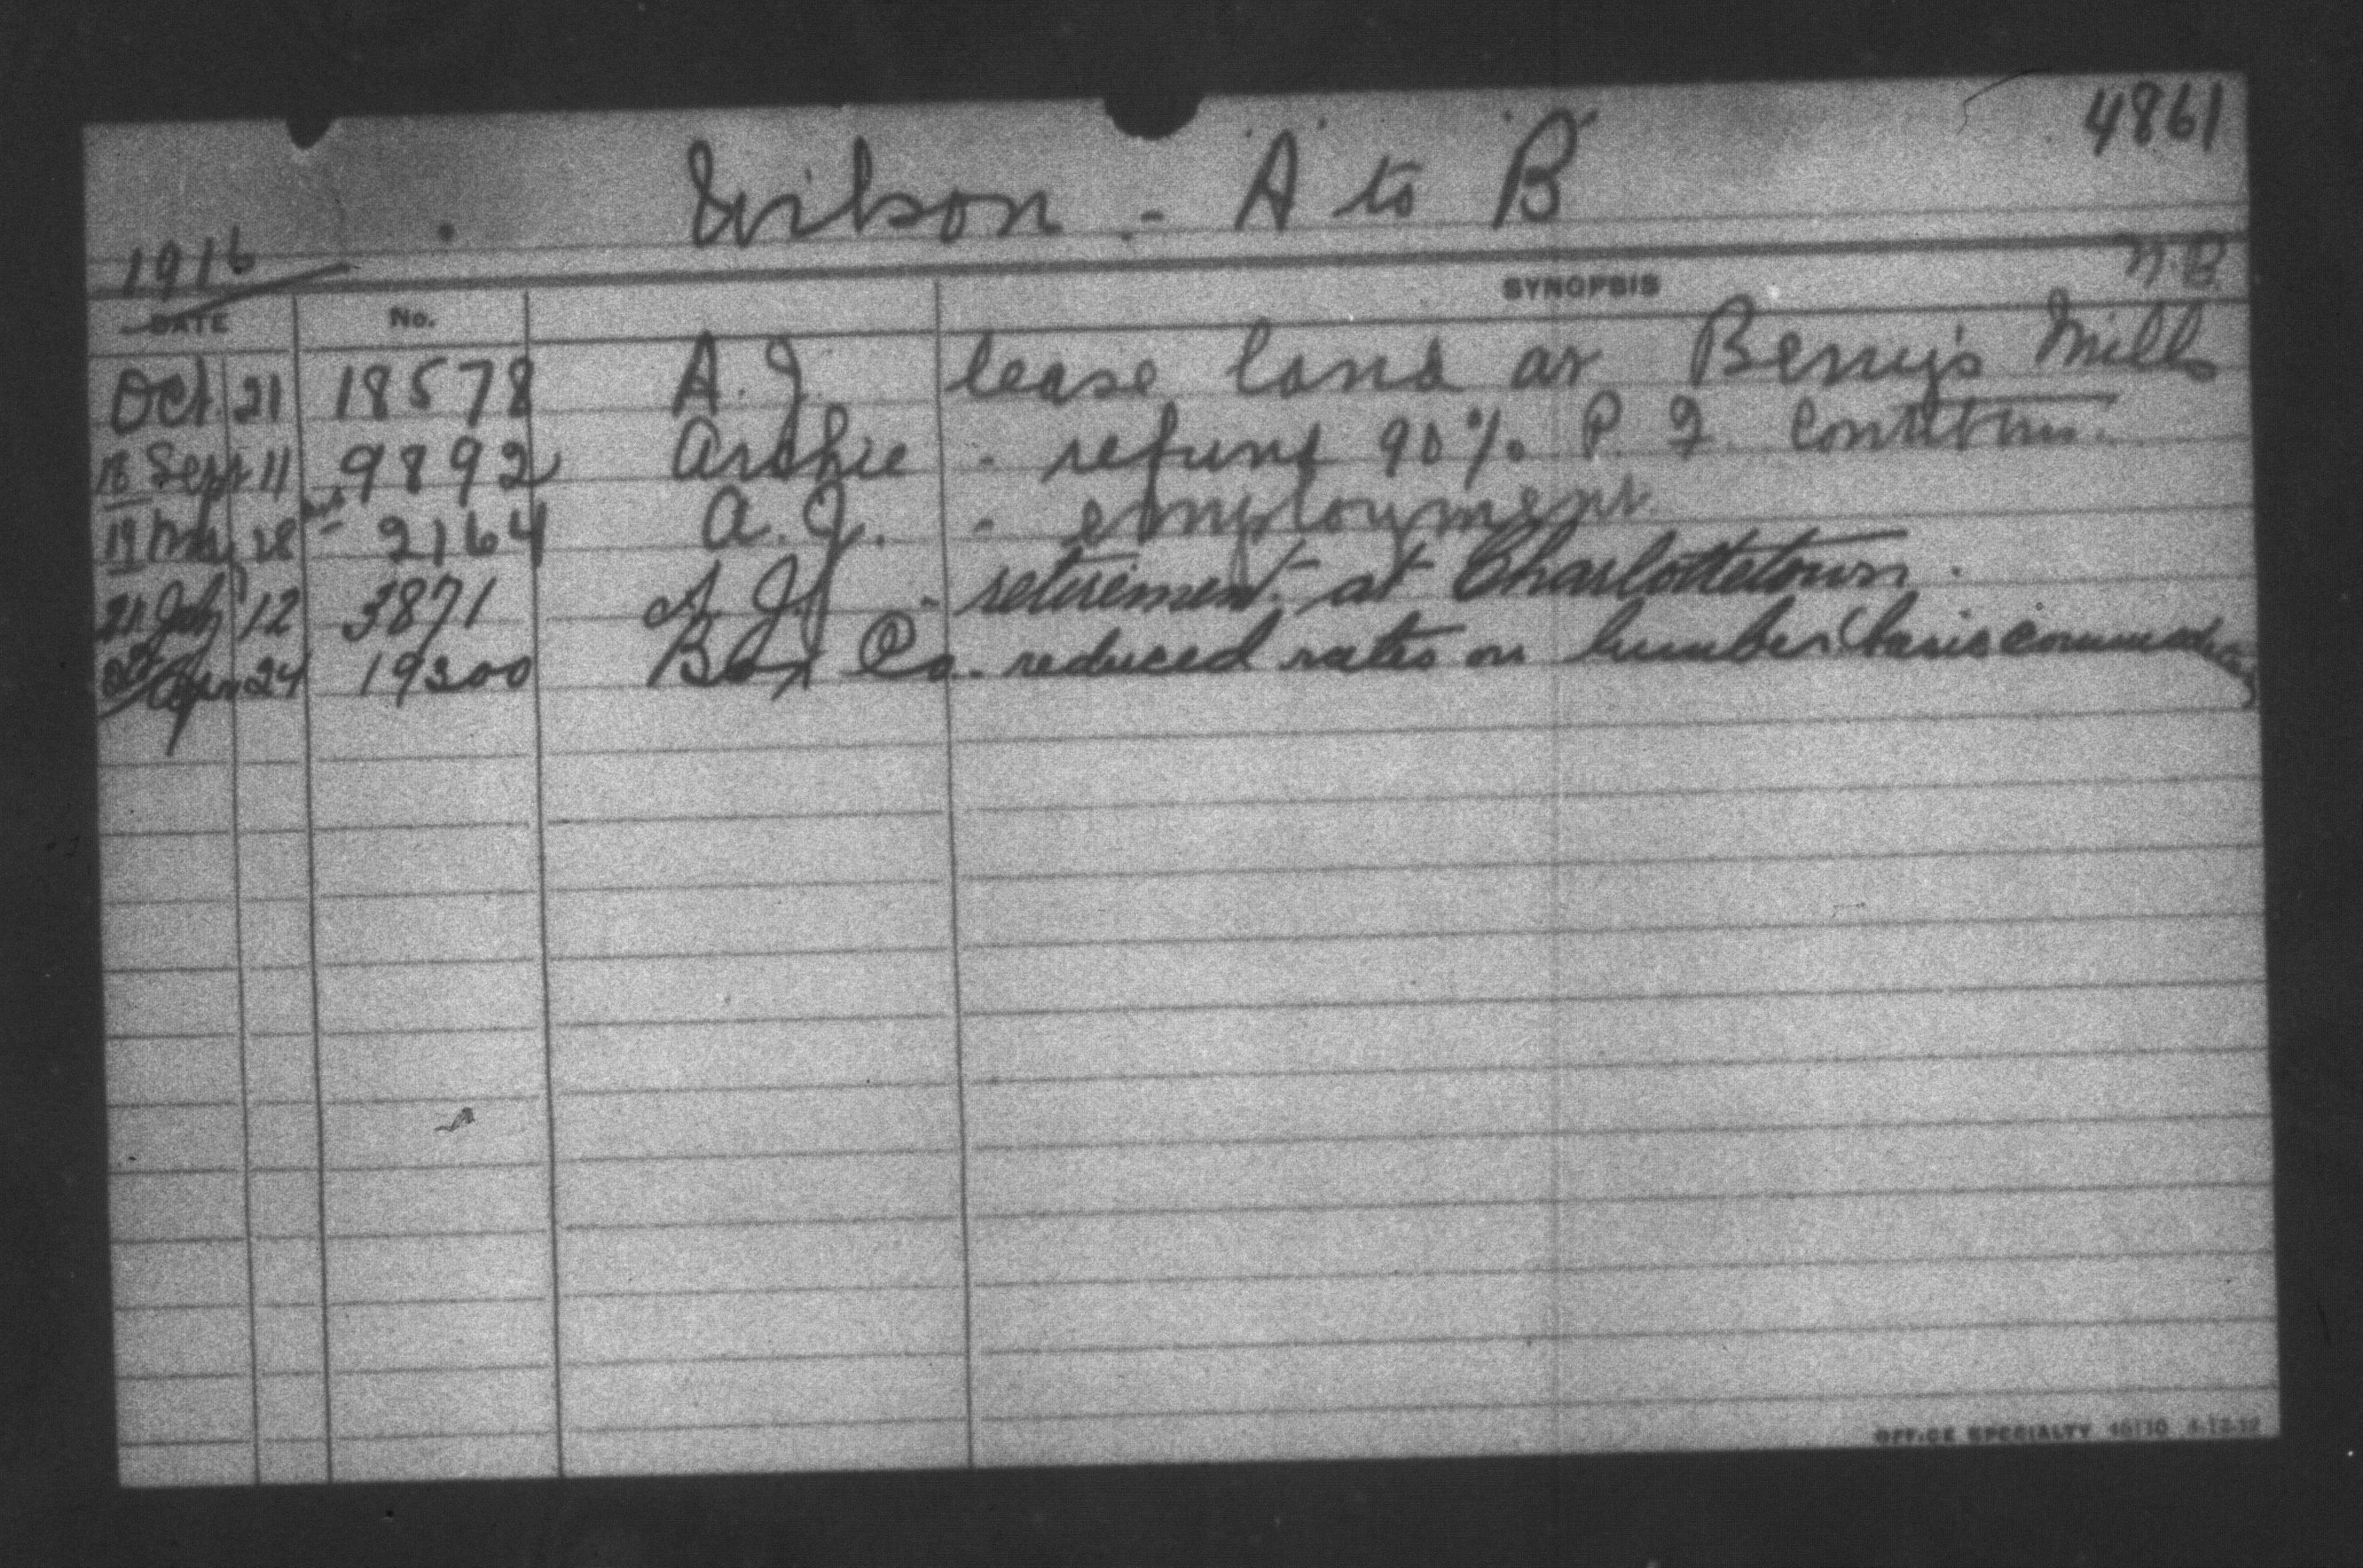 4861
Wilson - "A" to "B"
1916
N.B.
DATE No. SYNOPSIS
Oct. 21 18578 A. J. lease land at Berry's Mills
18 Sept 11 9892 Archie - refund 90% P. F. Contbtns.
19 May 28 2164 A. J. - employment
21 July 12 3871 A. J. - retirement at Charlottetown.
Apr 24 19300 Box Co. reduced rates on lumber (basis commodity
OFFICE SPECIALTY